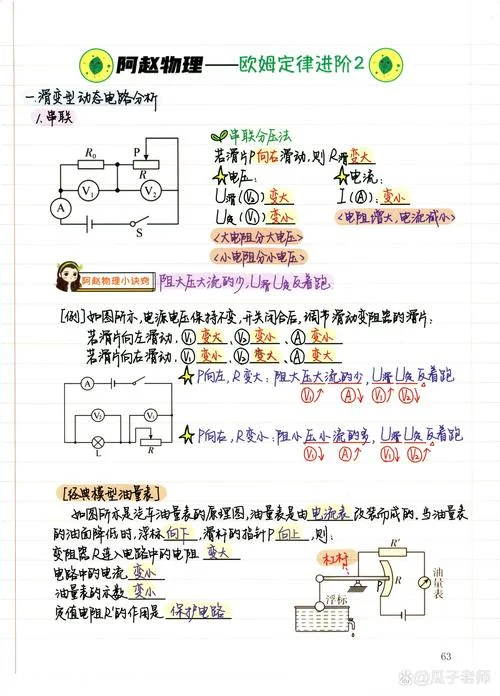 阿赵物理——欧姆定律进阶2
一.滑变型动态电路分析
1.串联
R₀ P R V₁ V₂ A S
串联分压法
若滑片P向右滑动,则R滑变大
电压: 电流:
U滑(V₂)变大 I(A):变小
U定(V₁)变小 <电阻增大,电流减小>
<大电阻分大电压>
<小电阻分小电压>
阿赵物理小诀窍 阻大压大流的少,U滑U定反着跑.
[例]如图所示,电源电压保持不变,开关闭合后,调节滑动变阻器的滑片:
若滑片向左滑动,V₁变大、V₂变小、A变小
若滑片向右滑动,V₁变小、V₂变大、A变大
A V₂ V₁ L R
P向左,R变大:阻大压大流的少,U滑U定反着跑
V₁↑ A↓ V₁↑ V₂↓
P向右,R变小:阻小压小流的多,U滑U定反着跑
V₁↓ A↑ V₁↓ V₂↑
[经典模型油量表]
如图所示是汽车油量表的原理图,油量表是由电流表改装而成的.当油量表
的油面降低时,浮标向下,滑杆的指针P向上,则:
变阻器R连入电路中的电阻变大
电路中的电流变小
油量表的示数变小
定值电阻R'的作用是保护电路
杠杆 R' P R 油量表 浮标
63
@瓜子老师